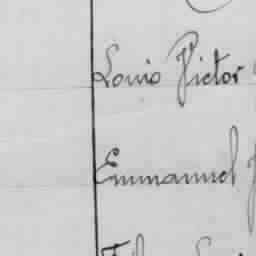 Louis Victor
Emmanuel